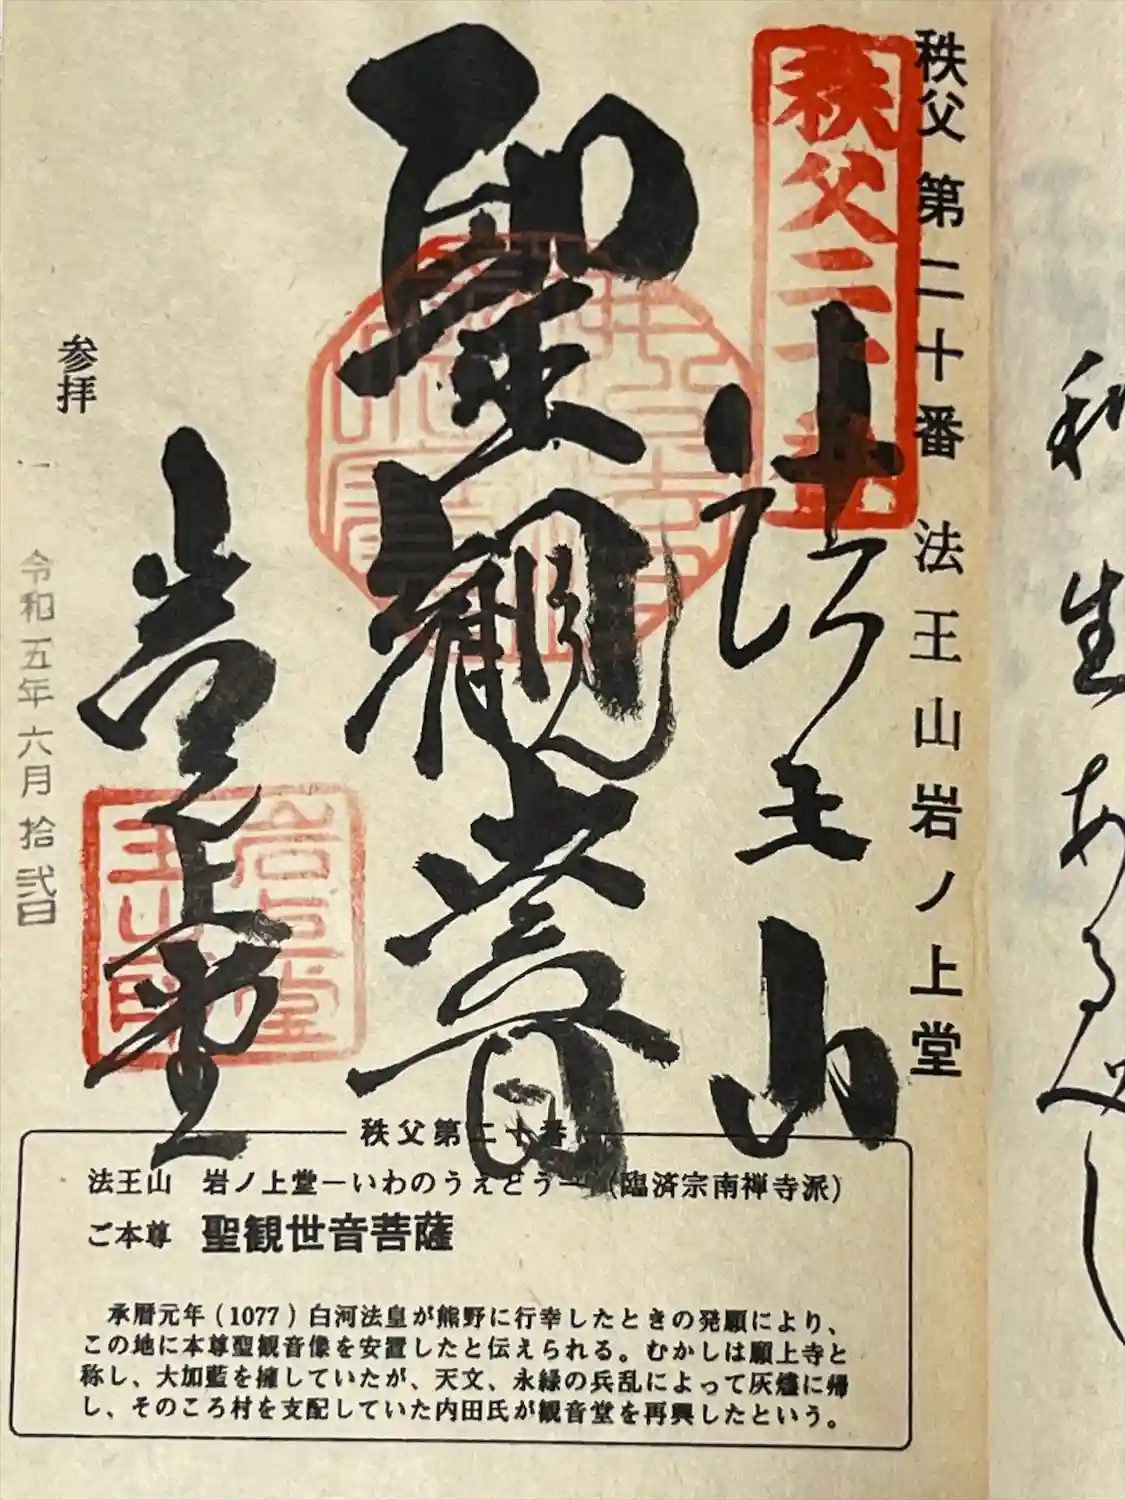 秩父第二十番 法王山岩ノ上堂
秩父二十番
法王山
聖観音
岩上堂
参拝
令和五年六月拾弐日
岩上堂
秩父第二十番
法王山 岩ノ上堂−いわのうえどう−(臨済宗南禅寺派)
ご本尊 聖観世音菩薩
承暦元年(1077)白河法皇が熊野に行幸したときの発願により、
この地に本尊聖観音像を安置したと伝えられる。むかしは願上寺と
称し、大加藍を擁していたが、天文、永縁の兵乱によって灰燼に帰
し、そのころ村を支配していた内田氏が観音堂を再興したという。
生あるは